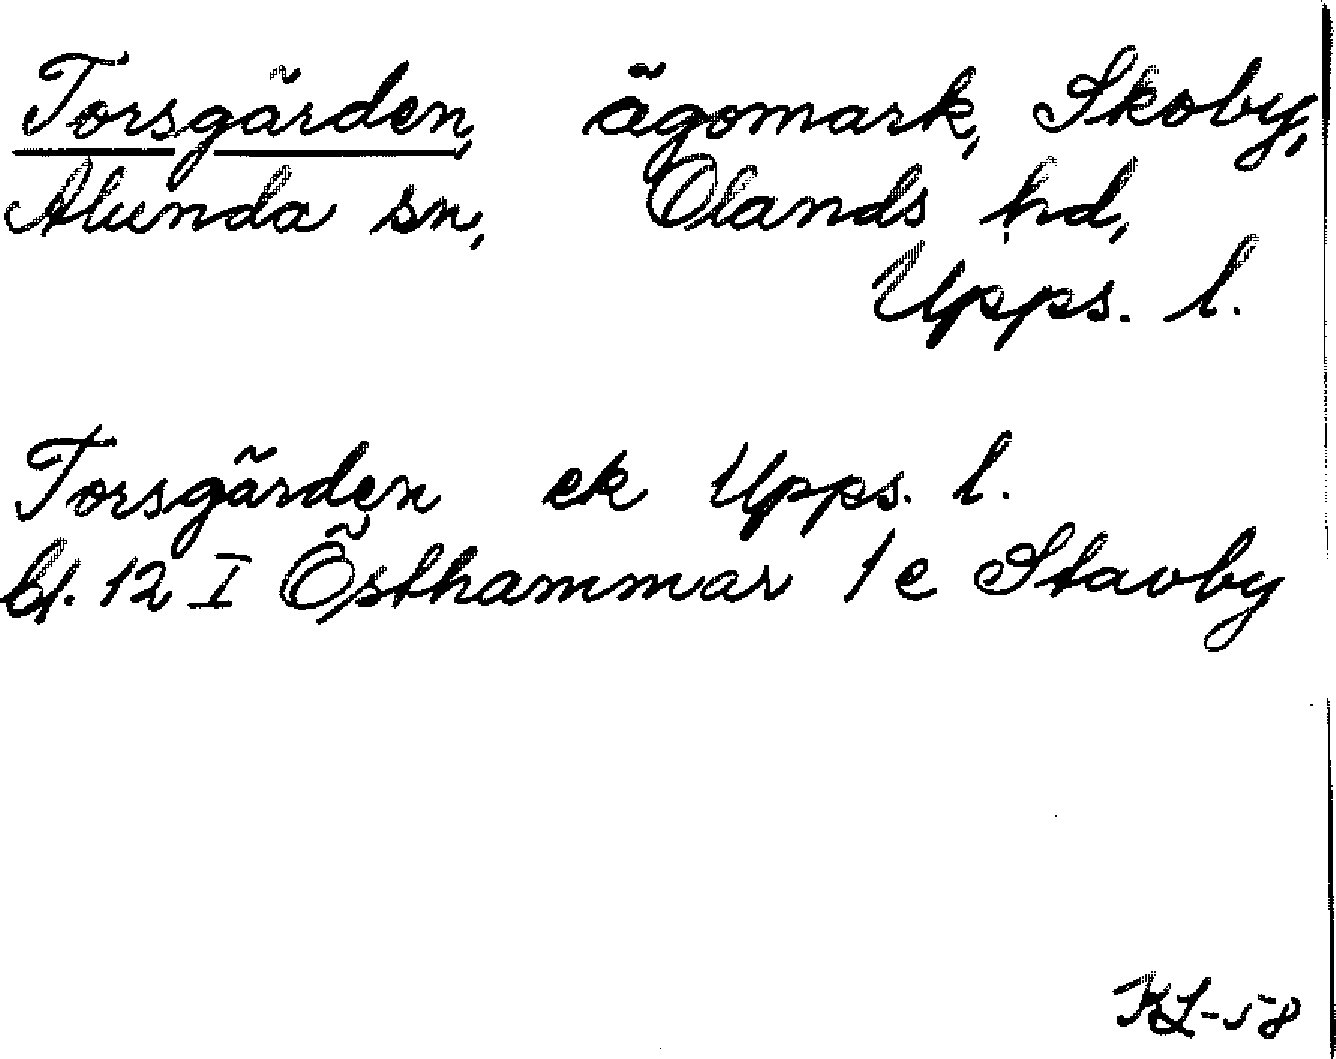 Torsgården, ägomark, Skoby,
Alunda sn, Olands hd,
Upps. l.
Torsgården ek Upps. l.
bl. 12 I Östhammar 1e Stavby
KL-58